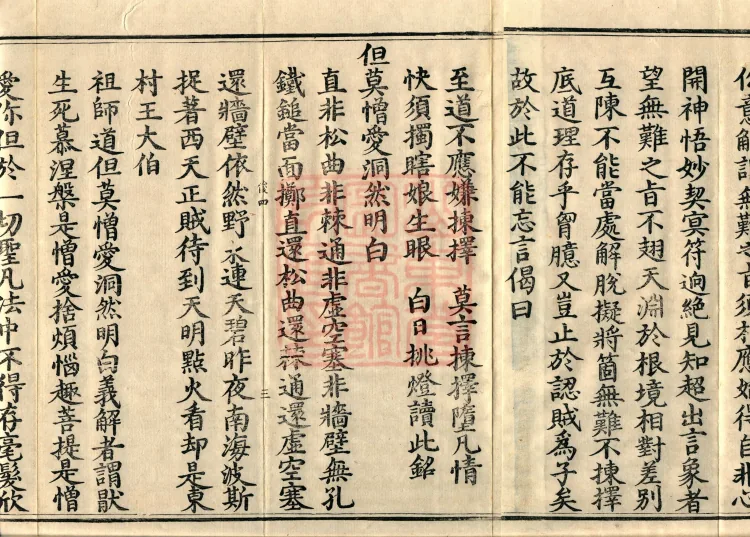 意解無難之旨須應始得自非心
開神悟妙契冥符逈絶見知超出言象者
望無難之旨不翅天淵於根境相對差別
互陳不能當處解脫擬將箇無難不揀擇
底道理存乎胷臆又豈止於認賊爲子矣
故於此不能忘言偈曰
至道不應嫌揀擇　莫言揀擇墮凡情
快須獨瞎娘生眼　白日挑燈讀此銘
但莫憎愛洞然明白
直非松曲非棘通非虛空塞非牆壁無孔
鐵鎚當面擲直還松曲還棘通還虛空塞
四　三
還牆壁依然野水連天碧昨夜南海波斯
捉著西天正賊待到天明點火看却是東
村王大伯
祖師道但莫憎愛洞然明白義解者謂厭
生死慕涅槃是憎愛捨煩惱趣菩提是憎
愛你但於一切聖凡法中不得存毫髮欣